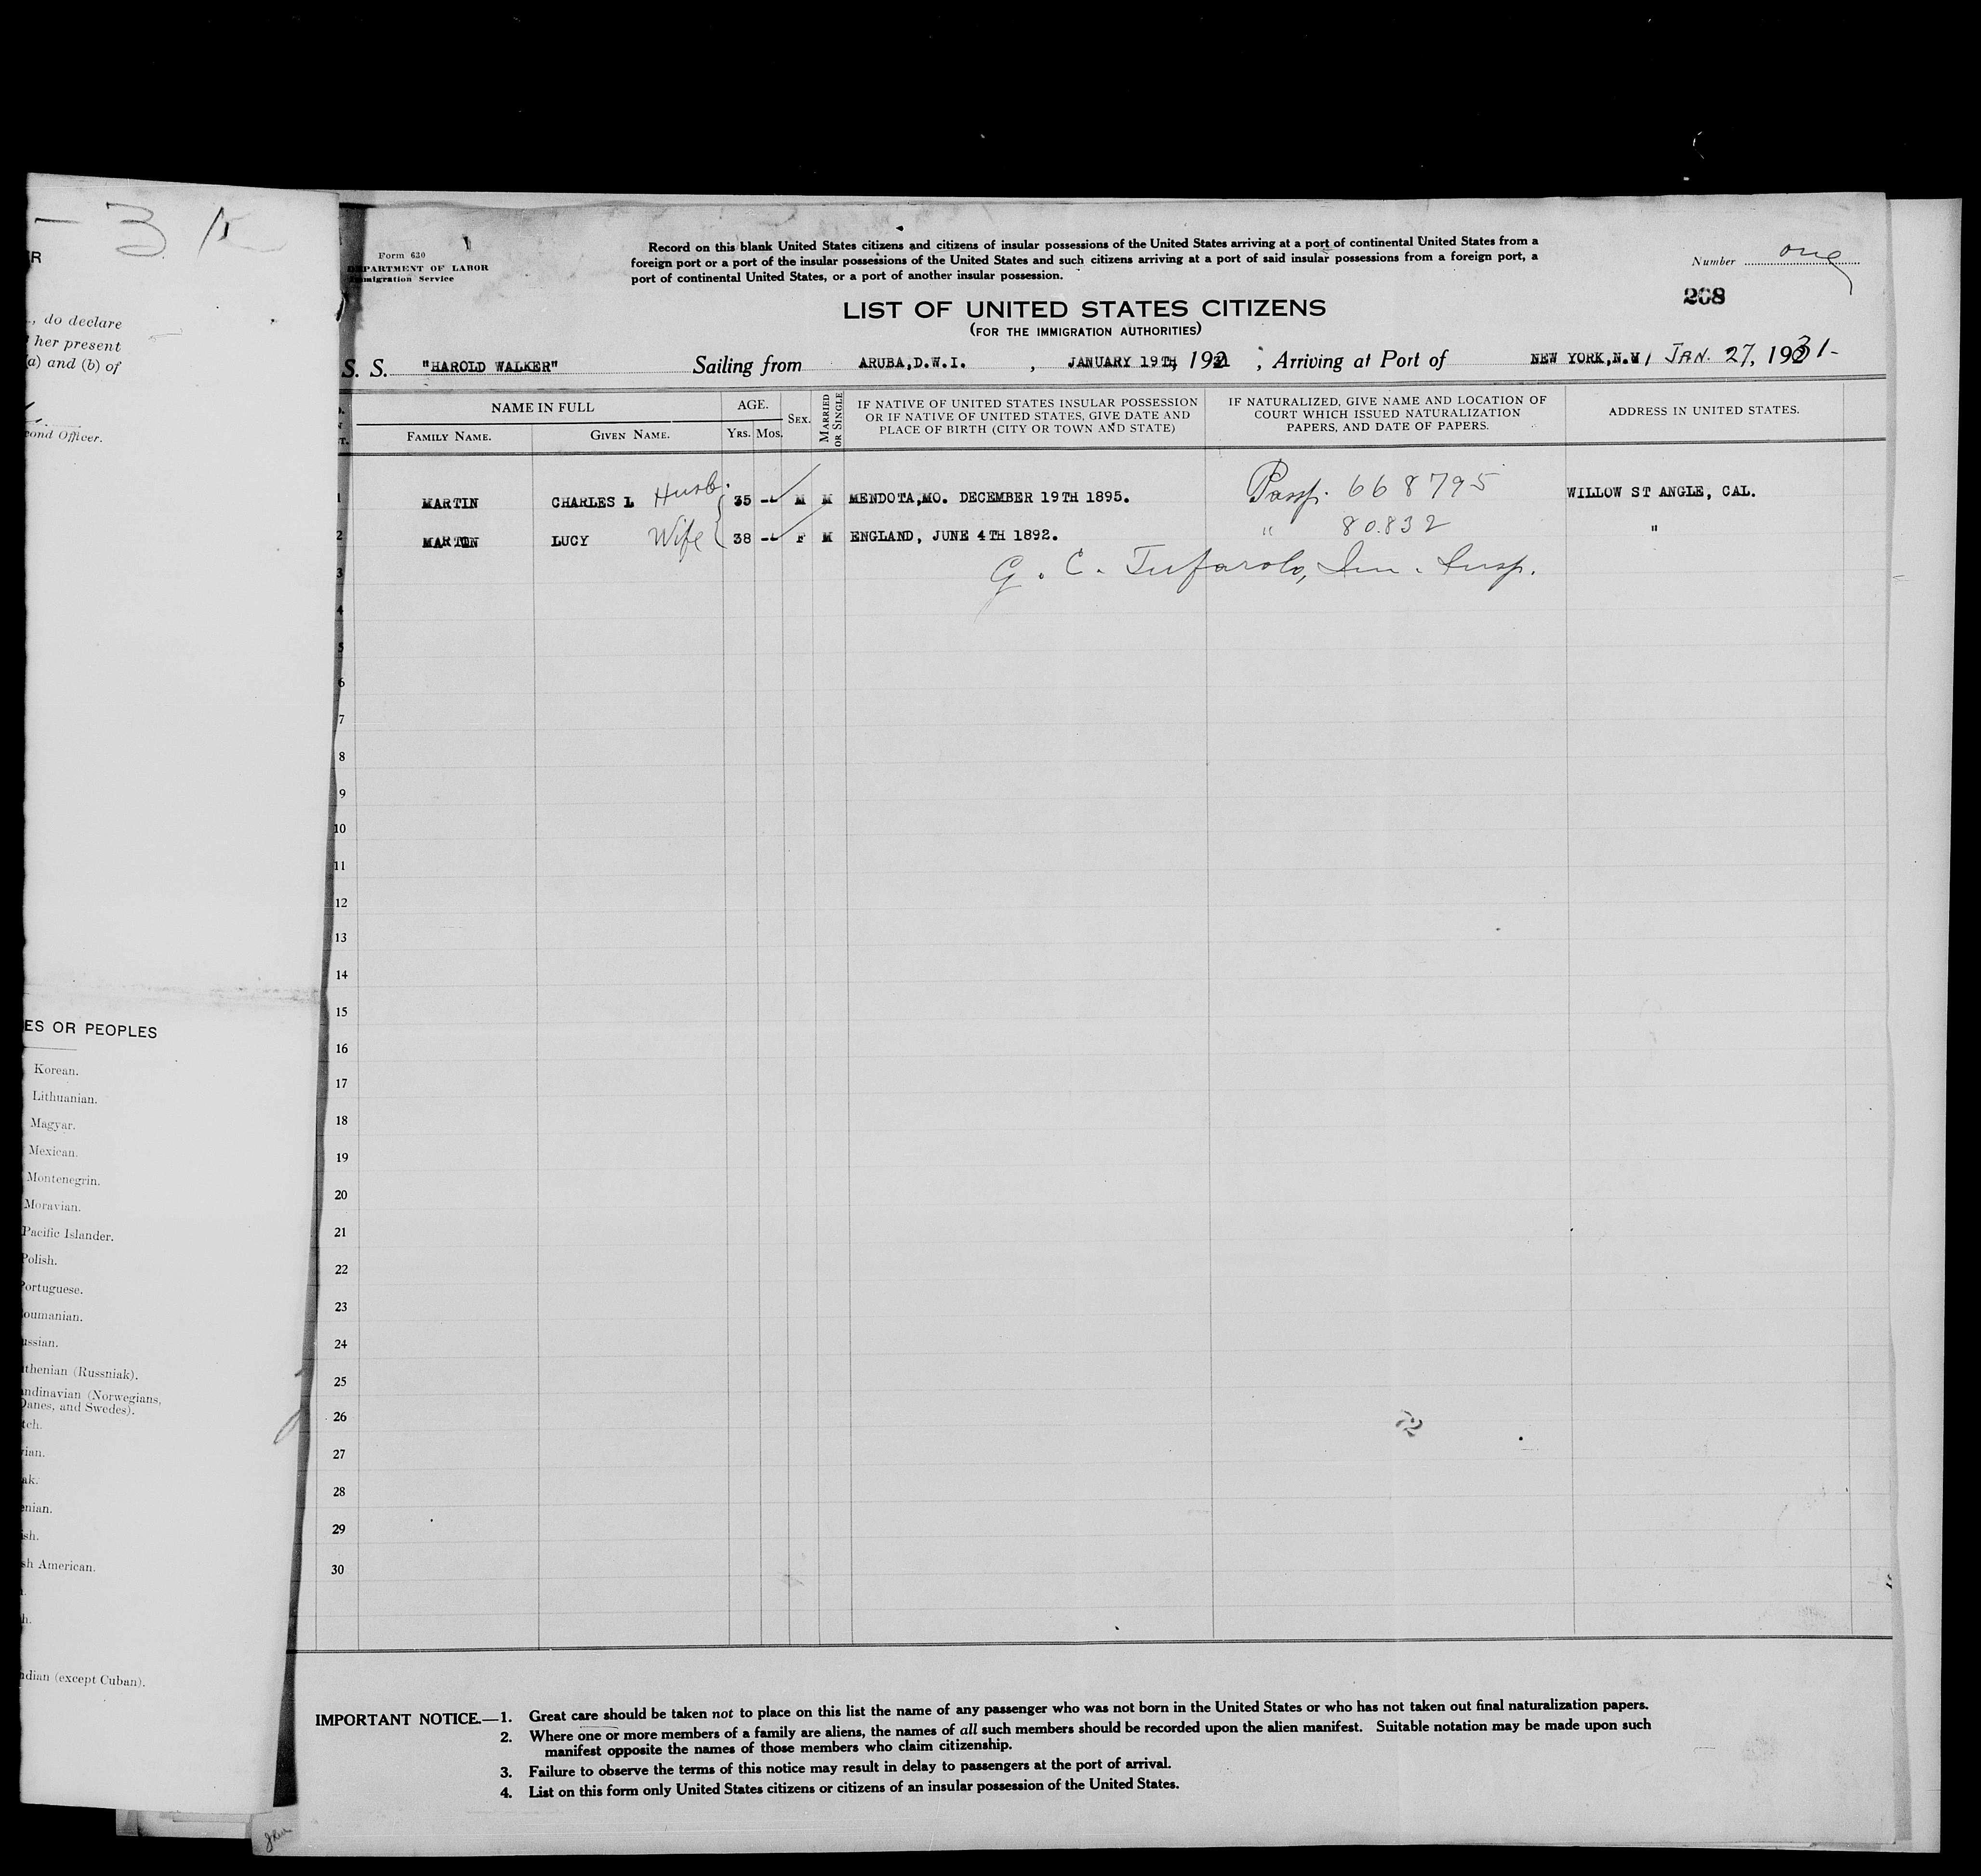 3
R
, do declare
her present
(a) and (b) of
cond Officer.
ES OR PEOPLES
Korean.
Lithuanian.
Magyar.
Mexican.
Montenegrin.
Moravian.
Pacific Islander.
Polish.
Portuguese.
oumanian.
ussian.
thenian (Russniak).
andinavian (Norwegians,
Danes, and Swedes).
tch.
vian.
ak.
enian.
ish.
sh American.
h.
ndian (except Cuban).
Form 630
DEPARTMENT OF LABOR
Immigration Service
Record on this blank United States citizens and citizens of insular possessions of the United States arriving at a port of continental United States from a
foreign port or a port of the insular possessions of the United States and such citizens arriving at a port of said insular possessions from a foreign port, a
port of continental United States, or a port of another insular possession.
Number one
208
LIST OF UNITED STATES CITIZENS
(FOR THE IMMIGRATION AUTHORITIES)
S. S. "HAROLD WALKER" Sailing from ARUBA,D.W.I. , JANUARY 19TH, 1931 ; Arriving at Port of NEW YORK,N.Y, JAN. 27, 1931-
NAME IN FULL AGE. SEX. MARRIED OR SINGLE IF NATIVE OF UNITED STATES INSULAR POSSESSION OR IF NATIVE OF UNITED STATES, GIVE DATE AND PLACE OF BIRTH (CITY OR TOWN AND STATE) IF NATURALIZED, GIVE NAME AND LOCATION OF COURT WHICH ISSUED NATURALIZATION PAPERS, AND DATE OF PAPERS. ADDRESS IN UNITED STATES.
FAMILY NAME. GIVEN NAME. YRS. MOS.
1 MARTIN CHARLES L Husb. 35 -- M M MENDOTA,MO. DECEMBER 19TH 1895. Passp. 668795 WILLOW ST ANGLE, CAL.
2 MARTIN LUCY Wife 38 -- F M ENGLAND, JUNE 4TH 1892. " 80.832 "
3 G. C. Tufarolo, Im. Insp.
4
5
6
7
8
9
10
11
12
13
14
15
16
17
18
19
20
21
22
23
24
25
26
27
28
29
30
IMPORTANT NOTICE.—1. Great care should be taken not to place on this list the name of any passenger who was not born in the United States or who has not taken out final naturalization papers.
2. Where one or more members of a family are aliens, the names of all such members should be recorded upon the alien manifest. Suitable notation may be made upon such
manifest opposite the names of those members who claim citizenship.
3. Failure to observe the terms of this notice may result in delay to passengers at the port of arrival.
4. List on this form only United States citizens or citizens of an insular possession of the United States.